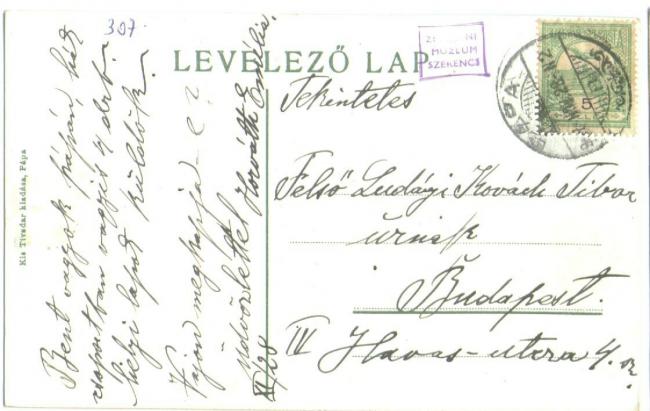 307.
LEVELEZŐ LAP
ZEMPLÉNI
MÚZEUM
SZERENCS
PÁPA
5
Kis Tivadar kiadása, Pápa
Bent vagyok Pápán, hát
csoportban vagyis 4 drb.
helyi lapot küldök.
Vajon megkapja-e?
Üdvözlettel Horváth Emília.
XI/28
Tekintetes
Felső Ludányi Kovách Tibor
úrnak
Budapest.
IV Havas-utcza 4. sz.